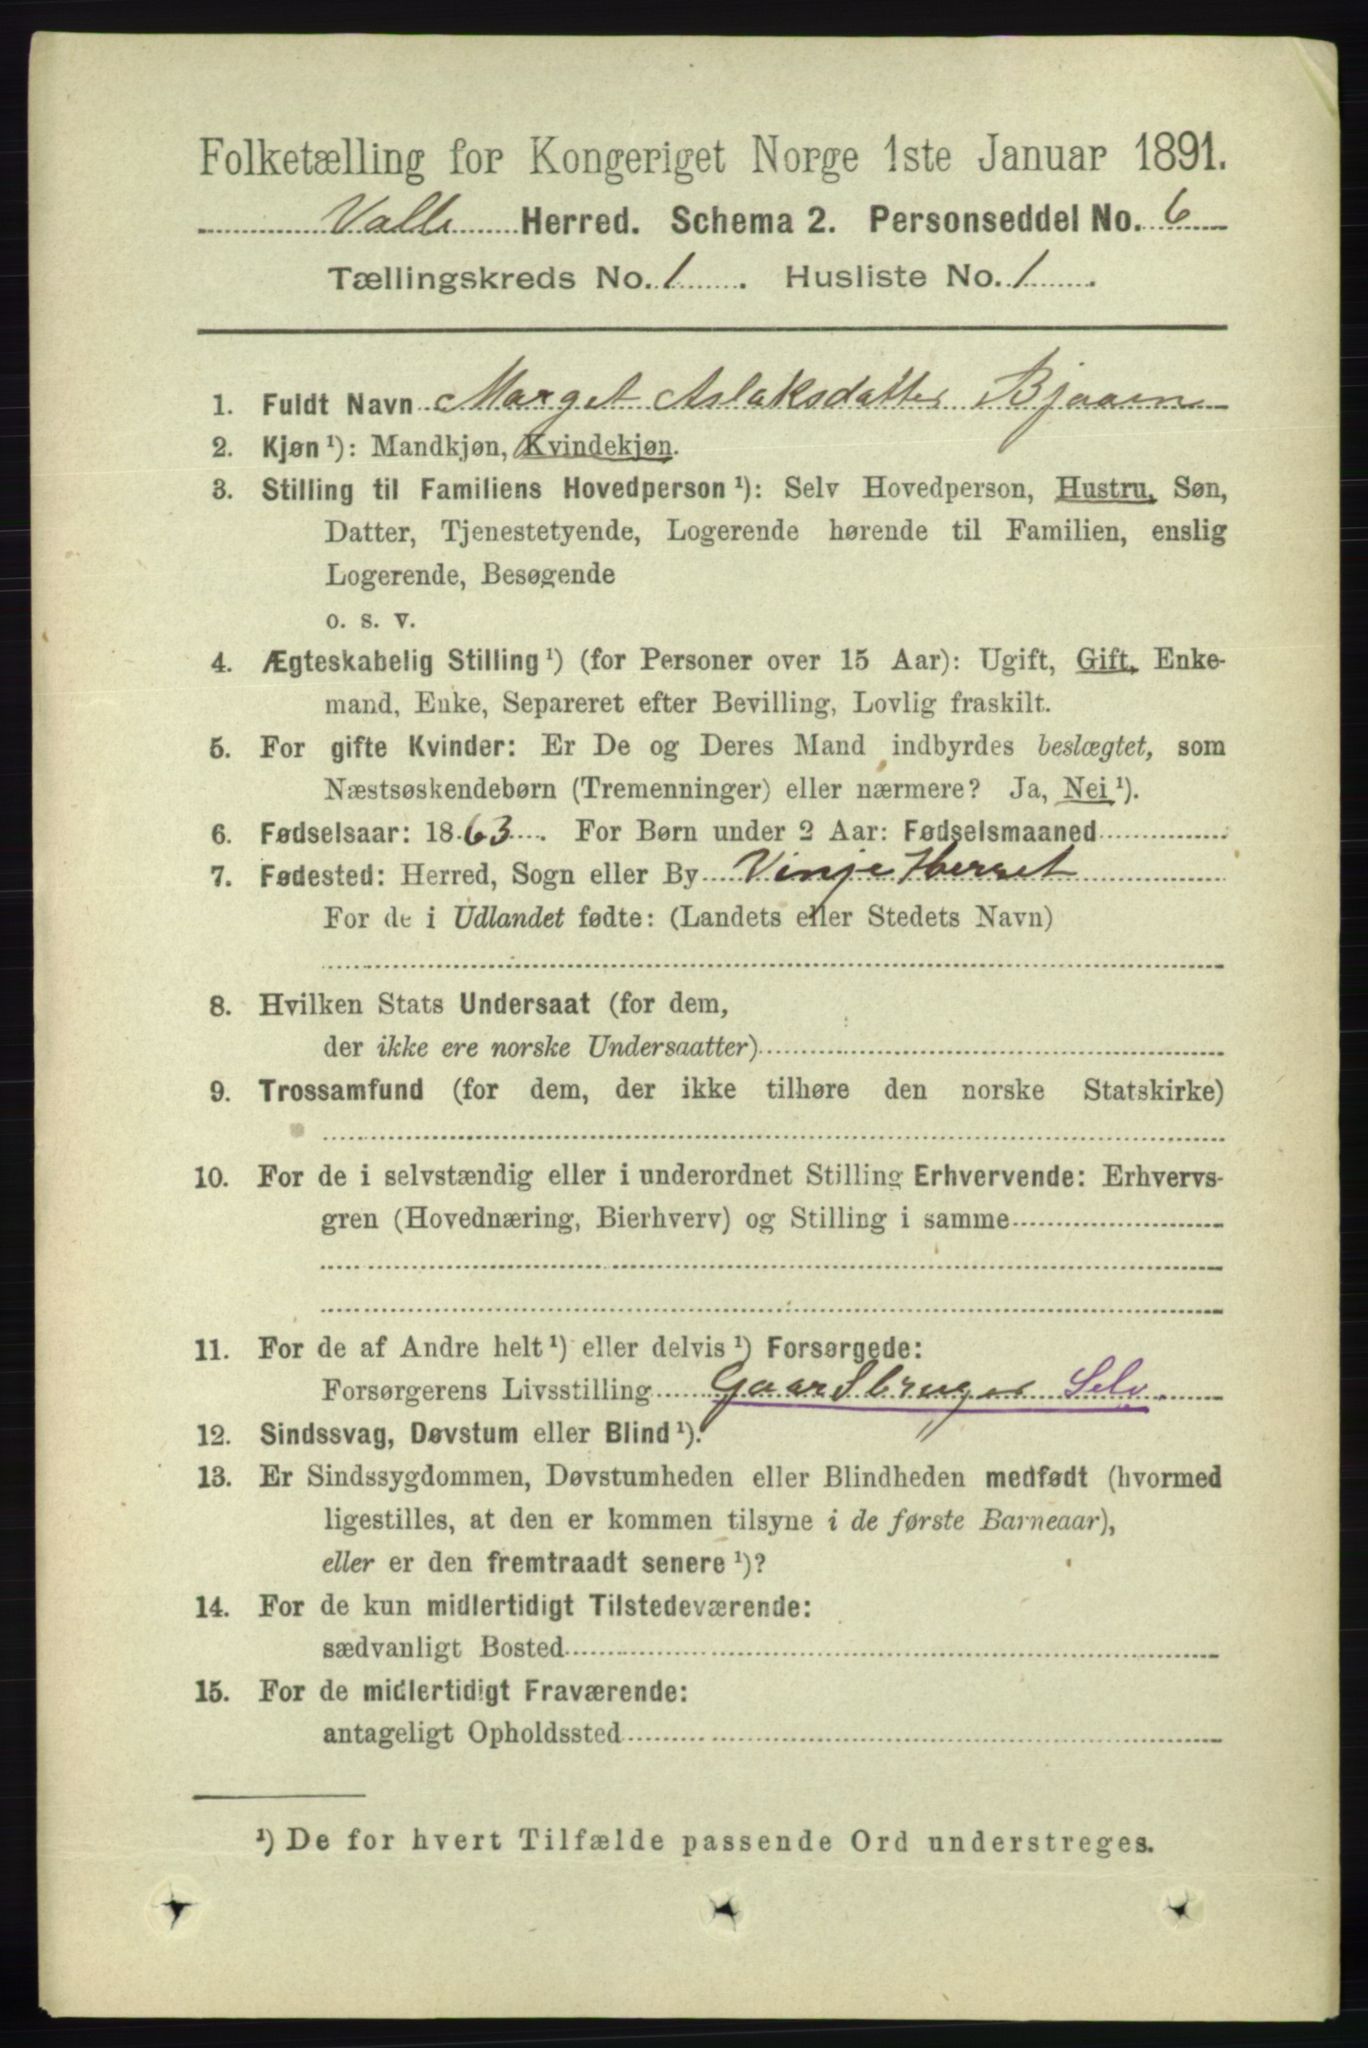 Folketælling for Kongeriget Norge 1ste Januar 1891.
Valle Herred. Schema 2. Personseddel No. 6
Tællingskreds No. 1. Husliste No. 1.
1. Fuldt Navn Marget Aslaksdatter Bjaaen
2. Kjøn¹): Mandkjøn, Kvindekjøn.
3. Stilling til Familiens Hovedperson¹): Selv Hovedperson, Hustru, Søn,
Datter, Tjenestetyende, Logerende hørende til Familien, enslig
Logerende, Besøgende
o. s. v.
4. Ægteskabelig Stilling¹) (for Personer over 15 Aar): Ugift, Gift, Enke-
mand, Enke, Separeret efter Bevilling, Lovlig fraskilt.
5. For gifte Kvinder: Er De og Deres Mand indbyrdes beslægtet, som
Næstsøskendebørn (Tremenninger) eller nærmere? Ja, Nei¹).
6. Fødselsaar: 1863. For Børn under 2 Aar: Fødselsmaaned
7. Fødested: Herred, Sogn eller By Vinje Herret
For de i Udlandet fødte: (Landets eller Stedets Navn)
8. Hvilken Stats Undersaat (for dem,
der ikke ere norske Undersaatter)
9. Trossamfund (for dem, der ikke tilhøre den norske Statskirke)
10. For de i selvstændig eller i underordnet Stilling Erhvervende: Erhvervs-
gren (Hovednæring, Bierhverv) og Stilling i samme
11. For de af Andre helt¹) eller delvis¹) Forsørgede:
Forsørgerens Livsstilling Gaardbruger Selv.
12. Sindssvag, Døvstum eller Blind¹).
13. Er Sindssygdommen, Døvstumheden eller Blindheden medfødt (hvormed
ligestilles, at den er kommen tilsyne i de første Barneaar),
eller er den fremtraadt senere¹)?
14. For de kun midlertidigt Tilstedeværende:
sædvanligt Bosted
15. For de midlertidigt Fraværende:
antageligt Opholdssted
¹) De for hvert Tilfælde passende Ord understreges.